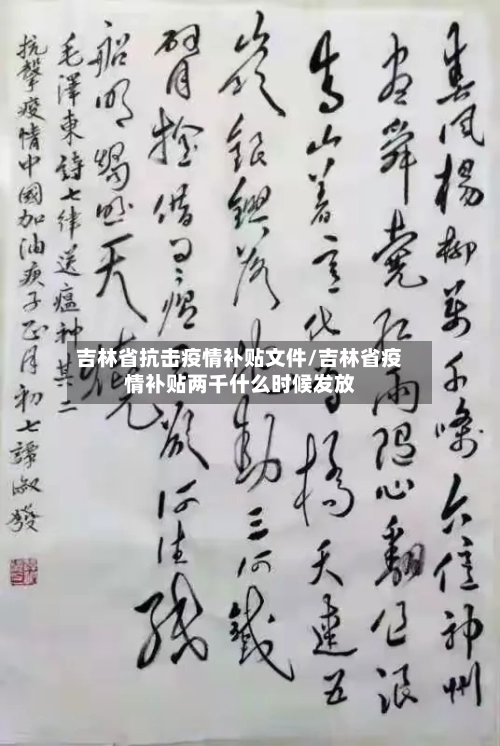 春风楊柳萬千條六億神州
尽舜堯红雨随心翻作浪
青山着意化为橋天連五
嶺銀鋤落地動三河鐵
臂摇借问瘟君欲何往紙
船明燭照天燒
毛澤東詩七律送瘟神其二
抗擊疫情中國加油庚子正月初七譚淑發
吉林省抗击疫情补贴文件/吉林省疫
情补贴两千什么时候发放